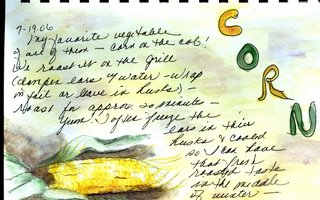 7-19-06
My favorite vegetable
of all of them - corn on the cob!
We roast it on the grill
(dampen ears w/ water - wrap
in foil or leave in husks) -
roast for approx. 20 minutes -
Yum! I often freeze the
ears in their
husks & cooked
so I can have
that fresh
roasted taste
in the middle
of winter -
CORN